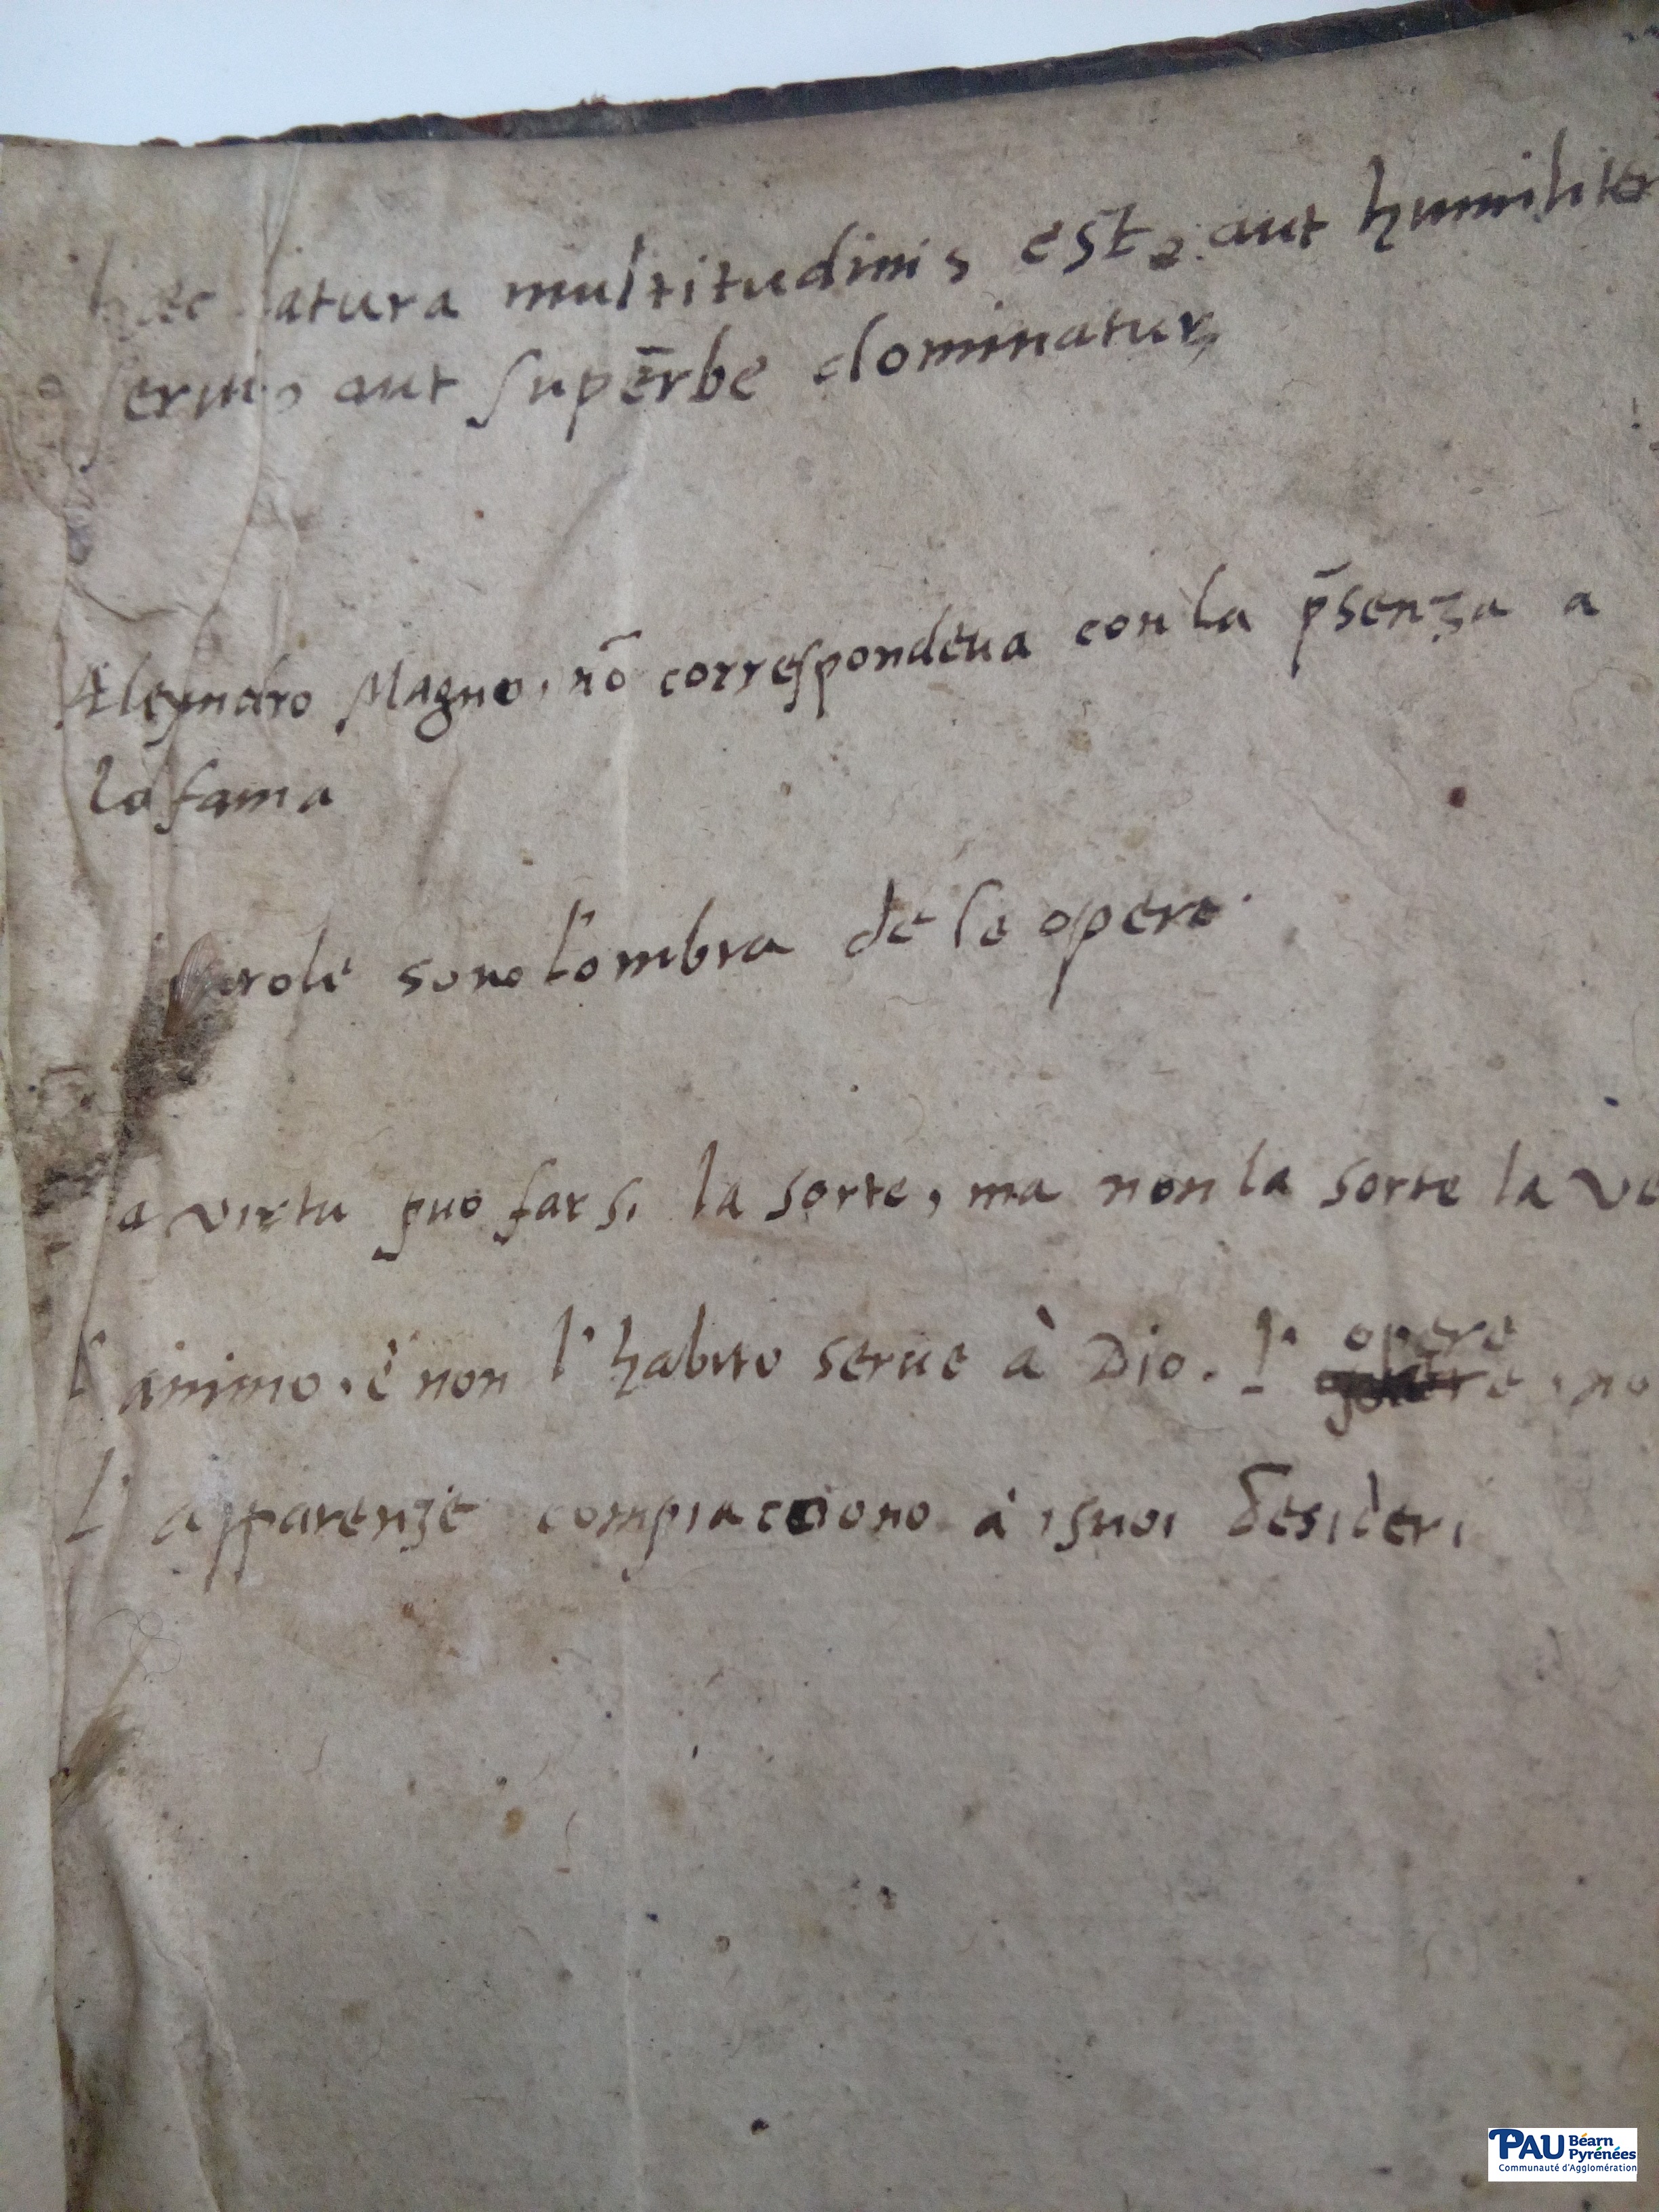 hæc natura multitudinis est, aut humiliter
seruit, aut supērbe dominatur,
Alexandro Magno, nō correspondeua con la p̄senza a
la fama
Parole sono l'ombra de le opere.
La virtu puo farsi la sorte, ma non la sorte la ve
l'animo. è non l'habito serue à Dio. l' opere , no
l'apparenze compiacciono à i suoi desideri
PAU Béarn
Pyrénées
Communauté d'Agglomération